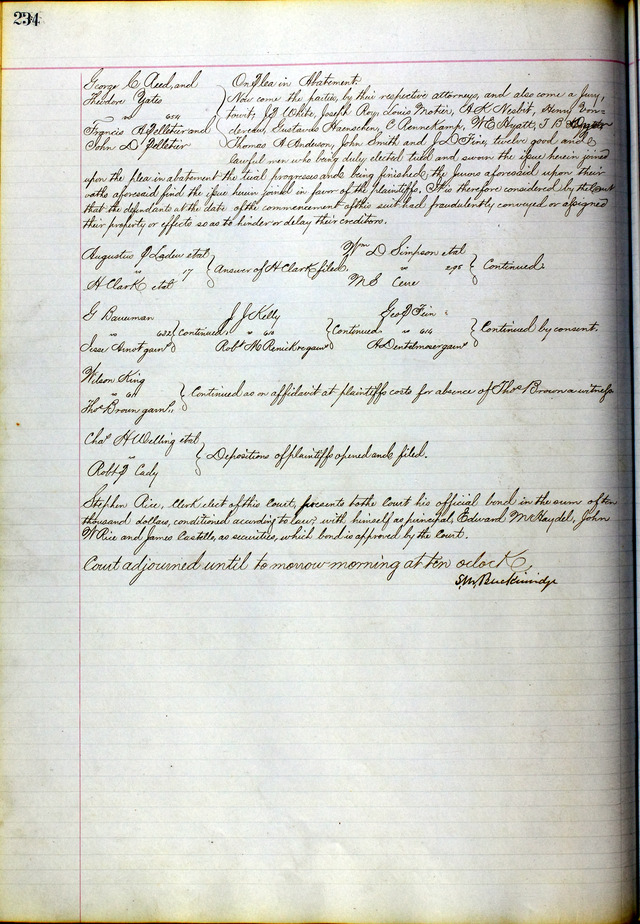 234
George C Reed, and
Theodore Yates
vs 654
Francis A Pelletier and
John D Pelletier
On Plea in Abatement
Now come the parties, by their respective attorneys, and also come a jury,
towit; J P White, Joseph Roy, Louis Motier, A K Nesbit, Henry
Gustavus Haenschen, C Rennekamp, W E Hyatt, T B
Thomas A Anderson, John Smith and J D Fine, twelve good and
lawful men who being duly elected tried and sworn the issue herein joined
upon the plea in abatement the trial progresses and being finished, the Jurors aforesaid upon their
oaths aforesaid find the issue herein joined in favor of the plaintiffs. It is therefore considered by the Court
that the defendants at the date of the commencement of this suit had fraudulently conveyed or assigned
their property or effects so as to hinder or delay their creditors.
Augustus P Ladew etal
vs 17
H Clark etal
Answer of H Clark filed.
Wm D Simpson etal
vs 295
M S
Continued.
G Bauman
vs 632
Jesse Arnot garn
Continued,
J J Kelly
vs 610
Robt M Renick garn
Continued
Geo P Fein
vs 614
A Dentelmoser garn
Continued by consent.
Wilson King
vs 611
Thos Brown garn
Continued as on affidavit at plaintiffs costs for absence of Thos Brown a witness
Chas H Welling etal
vs
Robt P Cady
Depositions of plaintiffs opened and filed.
Stephen Rice, Clerk elect of this Court, presents to the Court his official bond in the sum of ten
thousand dollars, conditioned acording to law, with himself as principal, Edward McKaydel, John
W Rice and James Castello, as securities, which bond is approved by the Court.
Court adjourned until to morrow morning at ten oclock.
S. M. Breckinridge